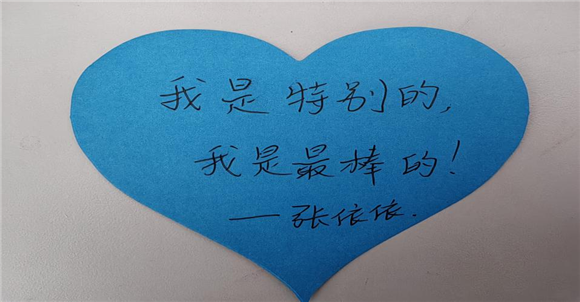 我是特别的，
我是最棒的！
——张依依.